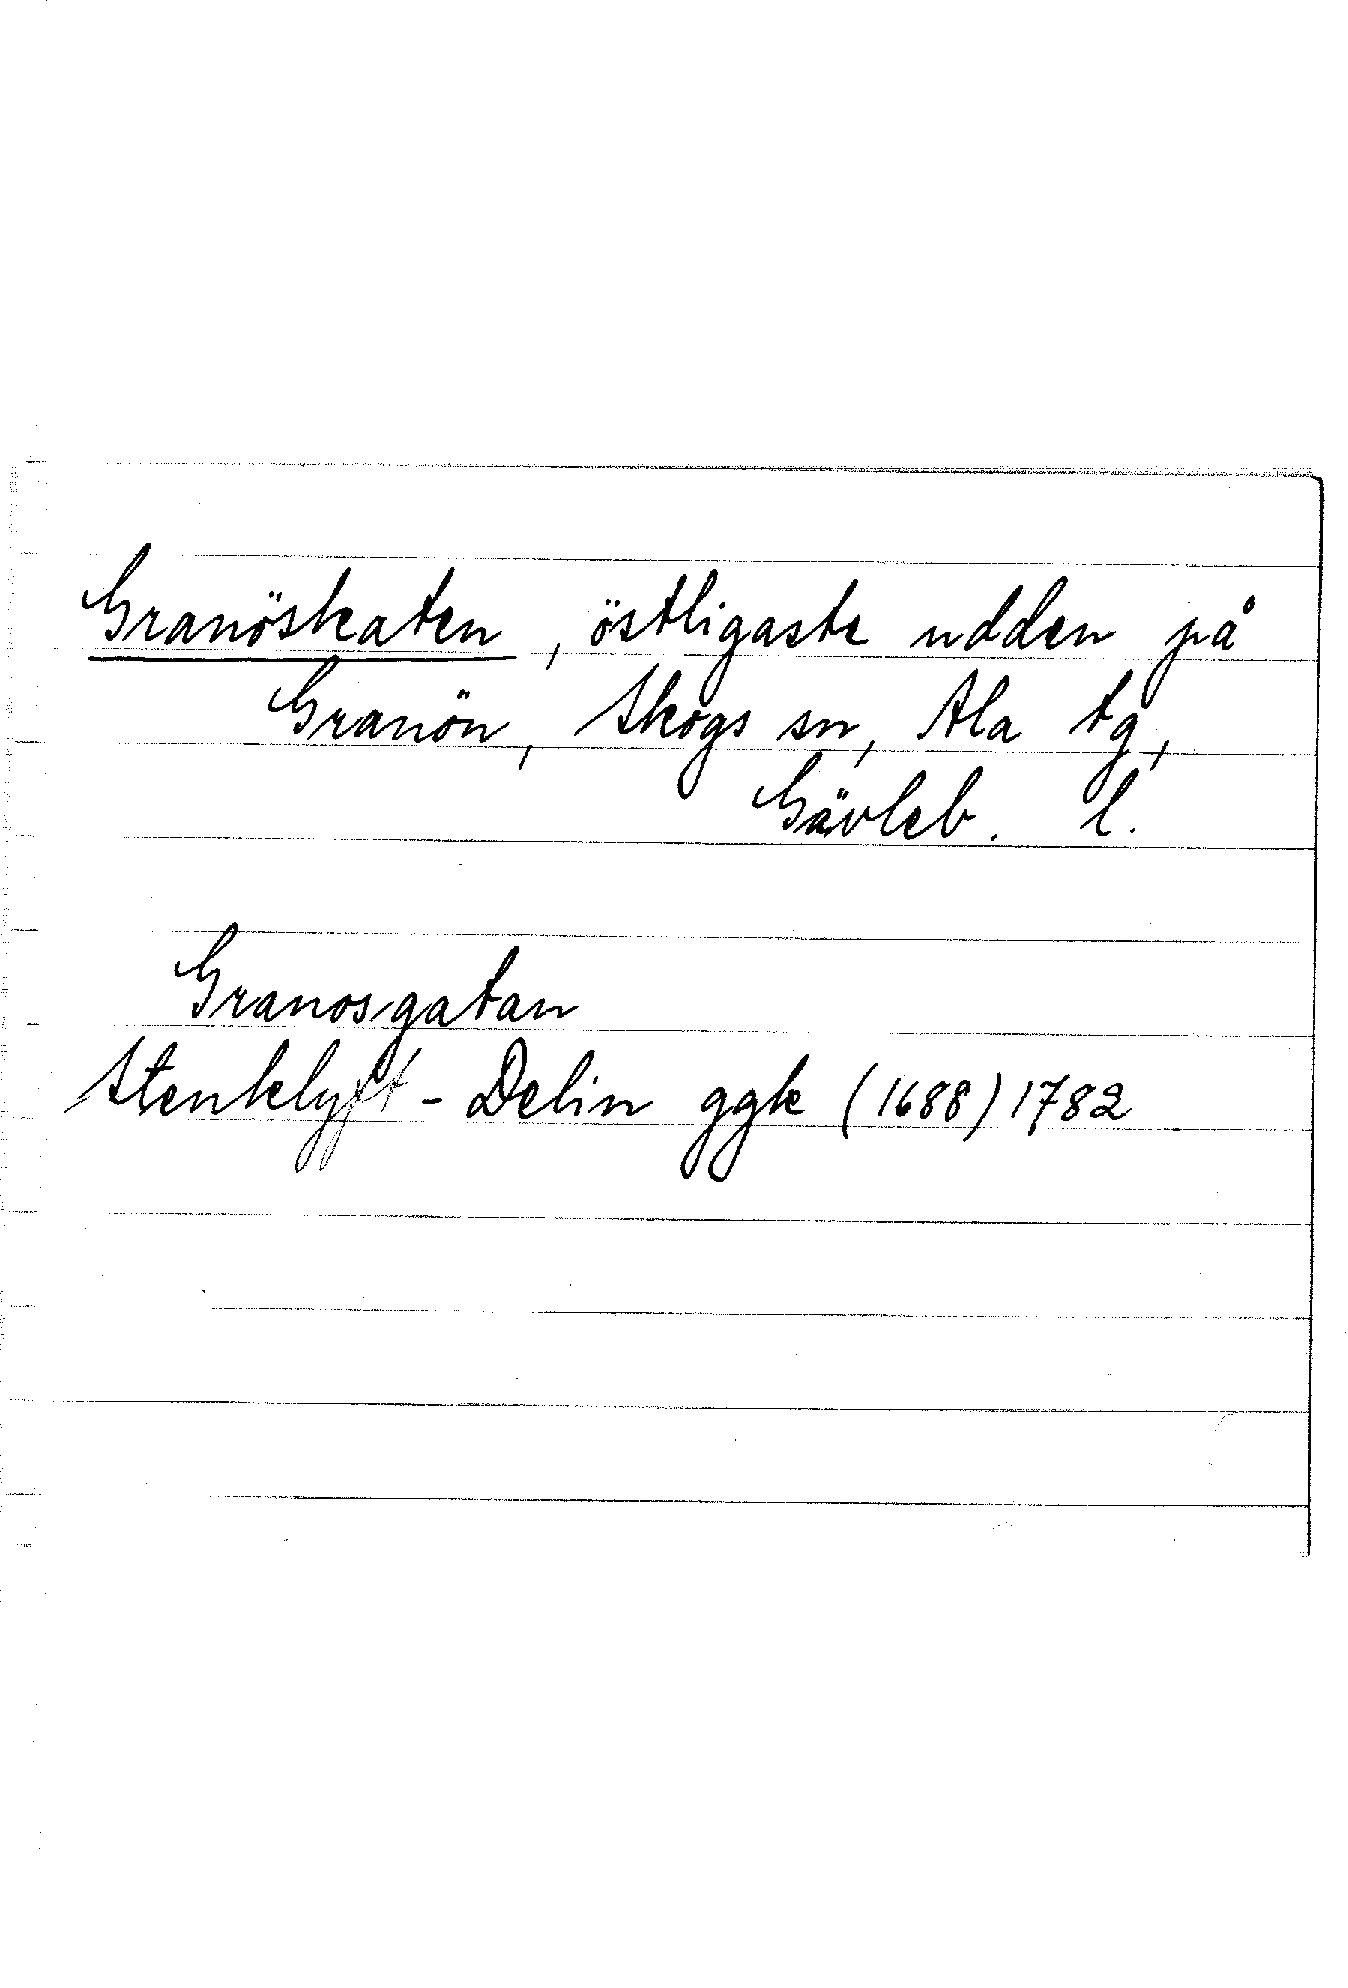 Granöskaten, östligaste udden på
Granön, Skogs sn, Ala tg,
Gävleb. l.
Granosgatan
Stenklyft - Delin ggk (1688) 1782